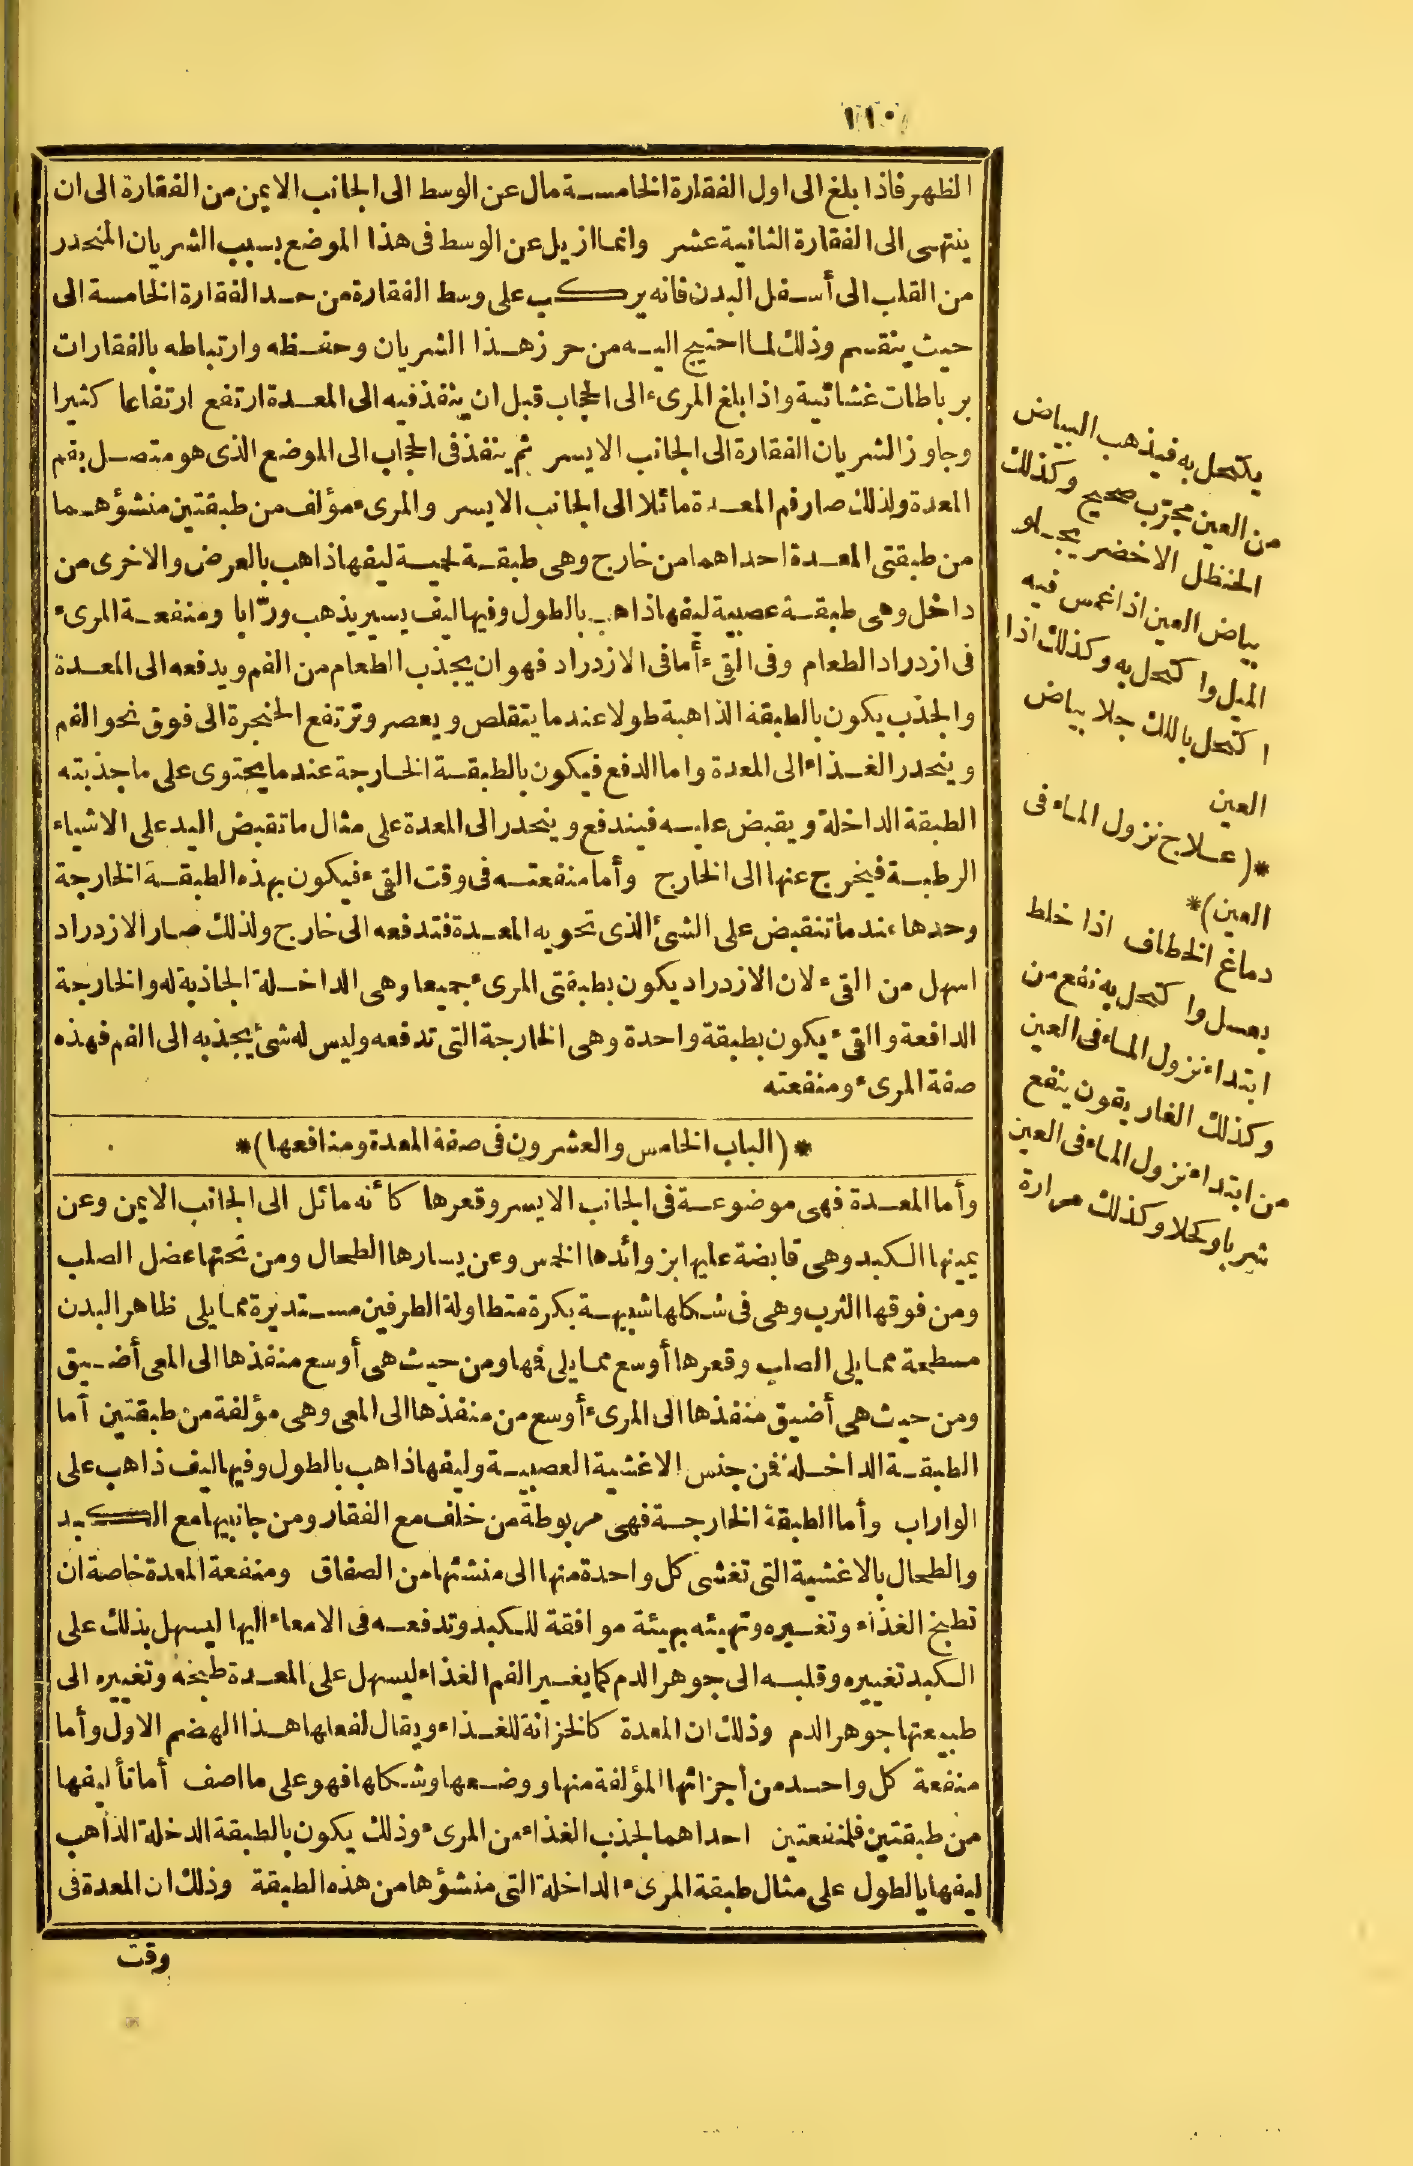 ١١٠
الظهر فاذا بلغ الى اول الفقارة الخامسة مال عن الوسط الى الجانب الايمن من الفقارة الى ان
ينتهى الى الفقارة الثانية عشر وانما ازيل عن الوسط فى هذا الموضع بسبب الشريان المنحدر
من القلب الى أسفل البدن فانه يركب على وسط الفقارة من حد الفقارة الخامسة الى
حيث ينقسم وذلك لما احتيج اليه من حرز هذا الشريان وحفظه وارتباطه بالفقارات
برباطات غشائية واذا بلغ المرىء الى الحجاب قبل ان ينفذ فيه الى المعدة ارتفع ارتفاعا كثيرا
وجاوز الشريان الفقارة الى الجانب الايسر ثم ينفذ فى الحجاب الى الموضع الذى هو متصل بفم
المعدة ولذلك صار فم المعدة مائلا الى الجانب الايسر والمرىء مؤلف من طبقتين منشؤهما
من طبقتى المعدة احداهما من خارج وهى طبقة لحمية ليفها ذاهب بالعرض والاخرى من
داخل وهى طبقة عصبية ليفها ذاهب بالطول وفيها ليف يسير يذهب ورّابا ومنفعة المرىء
فى ازدراد الطعام وفى القىء أما فى الازدراد فهو ان يجذب الطعام من الفم ويدفعه الى المعدة
والجذب يكون بالطبقة الذاهبة طولا عندما يتقلص ويعصر وترتفع الحنجرة الى فوق نحو الفم
وينحدر الغذاء الى المعدة واما الدفع فيكون بالطبقة الخارجة عندما يحتوى على ما جذبته
الطبقة الداخلة ويقبض عليه فيندفع وينحدر الى المعدة على مثال ما تقبض اليد على الاشياء
الرطبة فيخرج عنها الى الخارج وأما منفعته فى وقت القىء فيكون بهذه الطبقة الخارجة
وحدها عند ما تنقبض على الشئ الذى تحويه المعدة فتدفعه الى خارج ولذلك صار الازدراد
اسهل من القىء لان الازدراد يكون بطبقتى المرىء جميعا وهى الداخلة الجاذبة له والخارجة
الدافعة والقىء يكون بطبقة واحدة وهى الخارجة التى تدفعه وليس له شئ يجذبه الى الفم فهذه
صفة المرىء ومنفعته
*(الباب الخامس والعشرون فى صفة المعدة ومنافعها)*
وأما المعدة فهى موضوعة فى الجانب الايسر وقعرها كأنه مائل الى الجانب الايمن وعن
يمينها الكبد وهى قابضة عليها بزوائدها الخمس وعن يسارها الطحال ومن تحتها عضل الصلب
ومن فوقها الثرب وهى فى شكلها شبيهة بكرة متطاولة الطرفين مستديرة مما يلى ظاهر البدن
مسطحة مما يلى الصلب وقعرها أوسع مما يلى فها ومن حيث هى أوسع منفذها الى المعى أضيق
ومن حيث هى أضيق منفذها الى المرىء أوسع من منفذها الى المعى وهى مؤلفة من طبقتين أما
الطبقة الداخلة فمن جنس الاغشية العصبية وليفها ذاهب بالطول وفيها ليف ذاهب على
الواراب وأما الطبقة الخارجة فهى مربوطة من خلف مع الفقار ومن جانبيها مع الكبد
والطحال بالاغشية التى تغشى كل واحدة منها الى منشئها من الصفاق ومنفعة المعدة خاصة ان
تطبخ الغذاء وتغيره وتهيئه بهيئة موافقة للكبد وتدفعه فى الامعاء اليها ليسهل بذلك على
الكبد تغييره وقلبه الى جوهر الدم كما يغير الفم الغذاء ليسهل على المعدة طبخه وتغييره الى
طبيعتها جوهر الدم وذلك ان المعدة كالخزانة للغذاء ويقال لفعلها هذا الهضم الاول وأما
منفعة كل واحد من اجزائها المؤلفة منها ووضعها وشكلها فهو على ما اصف أما تأليفها
من طبقتين فلمنفعتين احداهما لجذب الغذاء من المرىء وذلك يكون بالطبقة الدخلة الذاهب
ليفها بالطول على مثال طبقة المرىء الداخلة التى منشؤها من هذه الطبقة وذلك ان المعدة فى
وقت
يكتحل به فيذهب البياض
من العين مجرّب صحيح وكذلك
الحنظل الاخضر يجلو
بياض العين اذا غمس فيه
الميل واكتحل به وكذلك اذا
اكتحل باللك جلا بياض
العين
*(علاج نزول الماء فى
العين)*
دماغ الخطاف اذا خلط
بعسل واكتحل به نفع من
ابتداء نزول الماء فى العين
وكذلك الغاريقون ينفع
من ابتداء نزول الماء فى العين
شربا وكحلا وكذلك مرارة